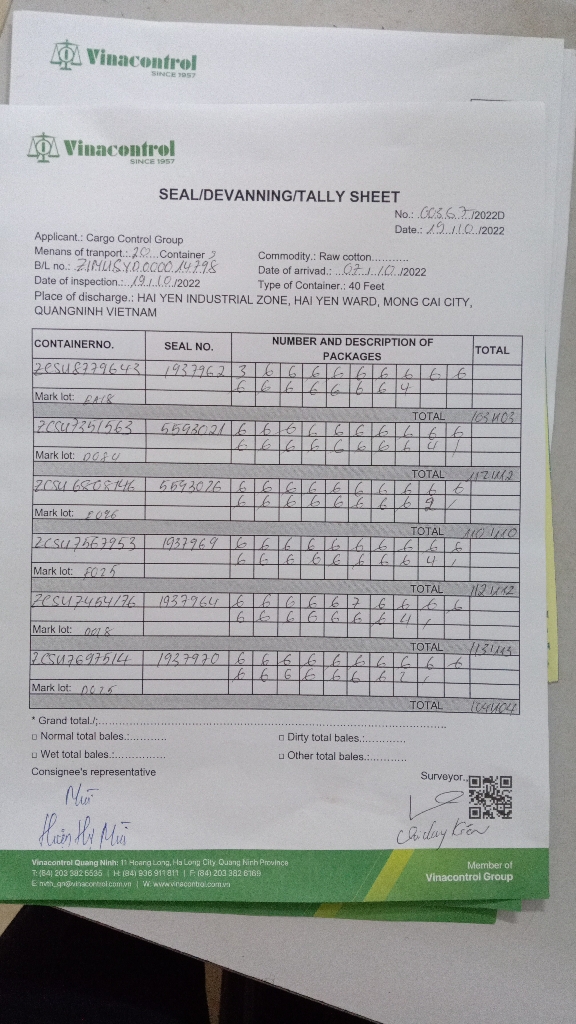 Vinacontrol
SINCE 1957
Vinacontrol
SINCE 1957
SEAL/DEVANNING/TALLY SHEET
No.: 00367/2022D
Date.: 19/10/2022
Applicant.: Cargo Control Group
Menans of tranport.: 20 Container s
Commodity.: Raw cotton...........
B/L no.: ZIMUSYD000014798
Date of arrivad.: 07/10/2022
Date of inspection.: 19/10/2022
Type of Container.: 40 Feet
Place of discharge.: HAI YEN INDUSTRIAL ZONE, HAI YEN WARD, MONG CAI CITY,
QUANGNINH VIETNAM
CONTAINERNO. SEAL NO. NUMBER AND DESCRIPTION OF PACKAGES TOTAL
ZCSU8779643 1937962 3 6 6 6 6 6 6 6 6 6
6 6 6 6 6 6 6 4
Mark lot:
TOTAL
ZCSU7351563 5593021 6 6 6 6 6 6 6 6 6 6
6 6 6 6 6 6 6 6 4 /
Mark lot: D084
TOTAL 112
ZCSU6808146 5593026 6 6 6 6 6 6 6 6 6 6
6 6 6 6 6 6 6 6 2 /
Mark lot: E026
TOTAL 110
ZCSU7567953 1937969 6 6 6 6 6 6 6 6 6 6
6 6 6 6 6 6 6 6 4 /
Mark lot: E025
TOTAL 112
ZCSU7454176 1937964 6 6 6 6 6 7 6 6 6 6
6 6 6 6 6 6 6 4 /
Mark lot: D018
TOTAL 113
ZCSU7697514 1937970 6 6 6 6 6 6 6 6 6 6
6 6 6 6 6 6 6 2 /
Mark lot: D025
TOTAL 104
* Grand total./:
□ Normal total bales.:...........
□ Dirty total bales.:............
□ Wet total bales.:..............
□ Other total bales.:...........
Consignee's representative
Surveyor.,
Vinacontrol Quang Ninh: 11 Hoang Long, Ha Long City, Quang Ninh Province
T: (84) 203 382 5535 | H: (84) 936 911 811 | F: (84) 203 382 6169
E: nvth_qn@vinacontrol.com.vn | W: www.vinacontrol.com.vn
Member of
Vinacontrol Group